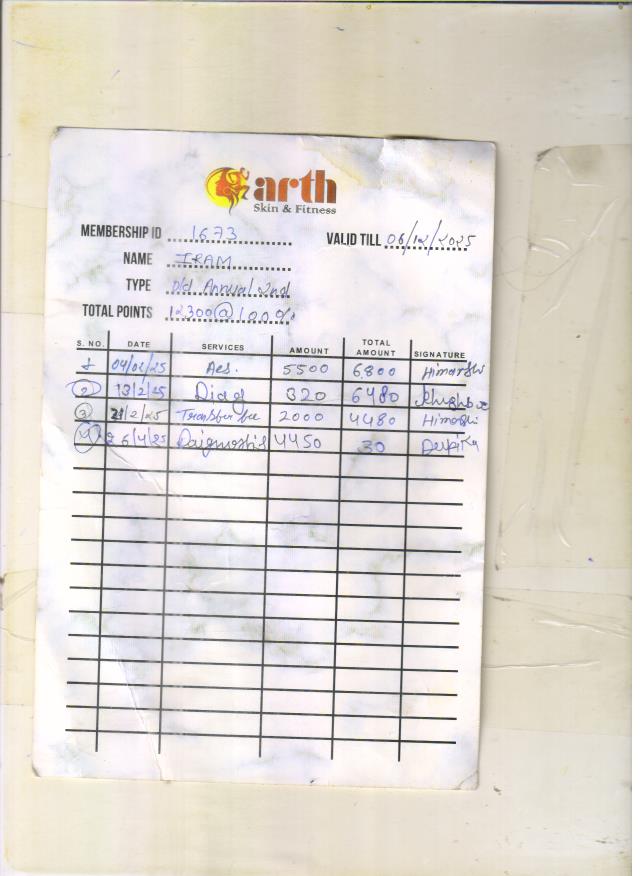 arth
Skin & Fitness
MEMBERSHIP ID 1673 VALID TILL 06/12/2025
NAME IRAM
TYPE Old Annual 2nd
TOTAL POINTS 12,300@100%
S. NO. DATE SERVICES AMOUNT TOTAL AMOUNT SIGNATURE
1 04/02/25 Aes. 5500 6800 Himanshi
2 13/2/25 Diag 320 6480 Khushboo
3 21/2/25 Transfer fee 2000 4480 Himanshi
4 26/4/25 Daignostis 4450 30 Deepika